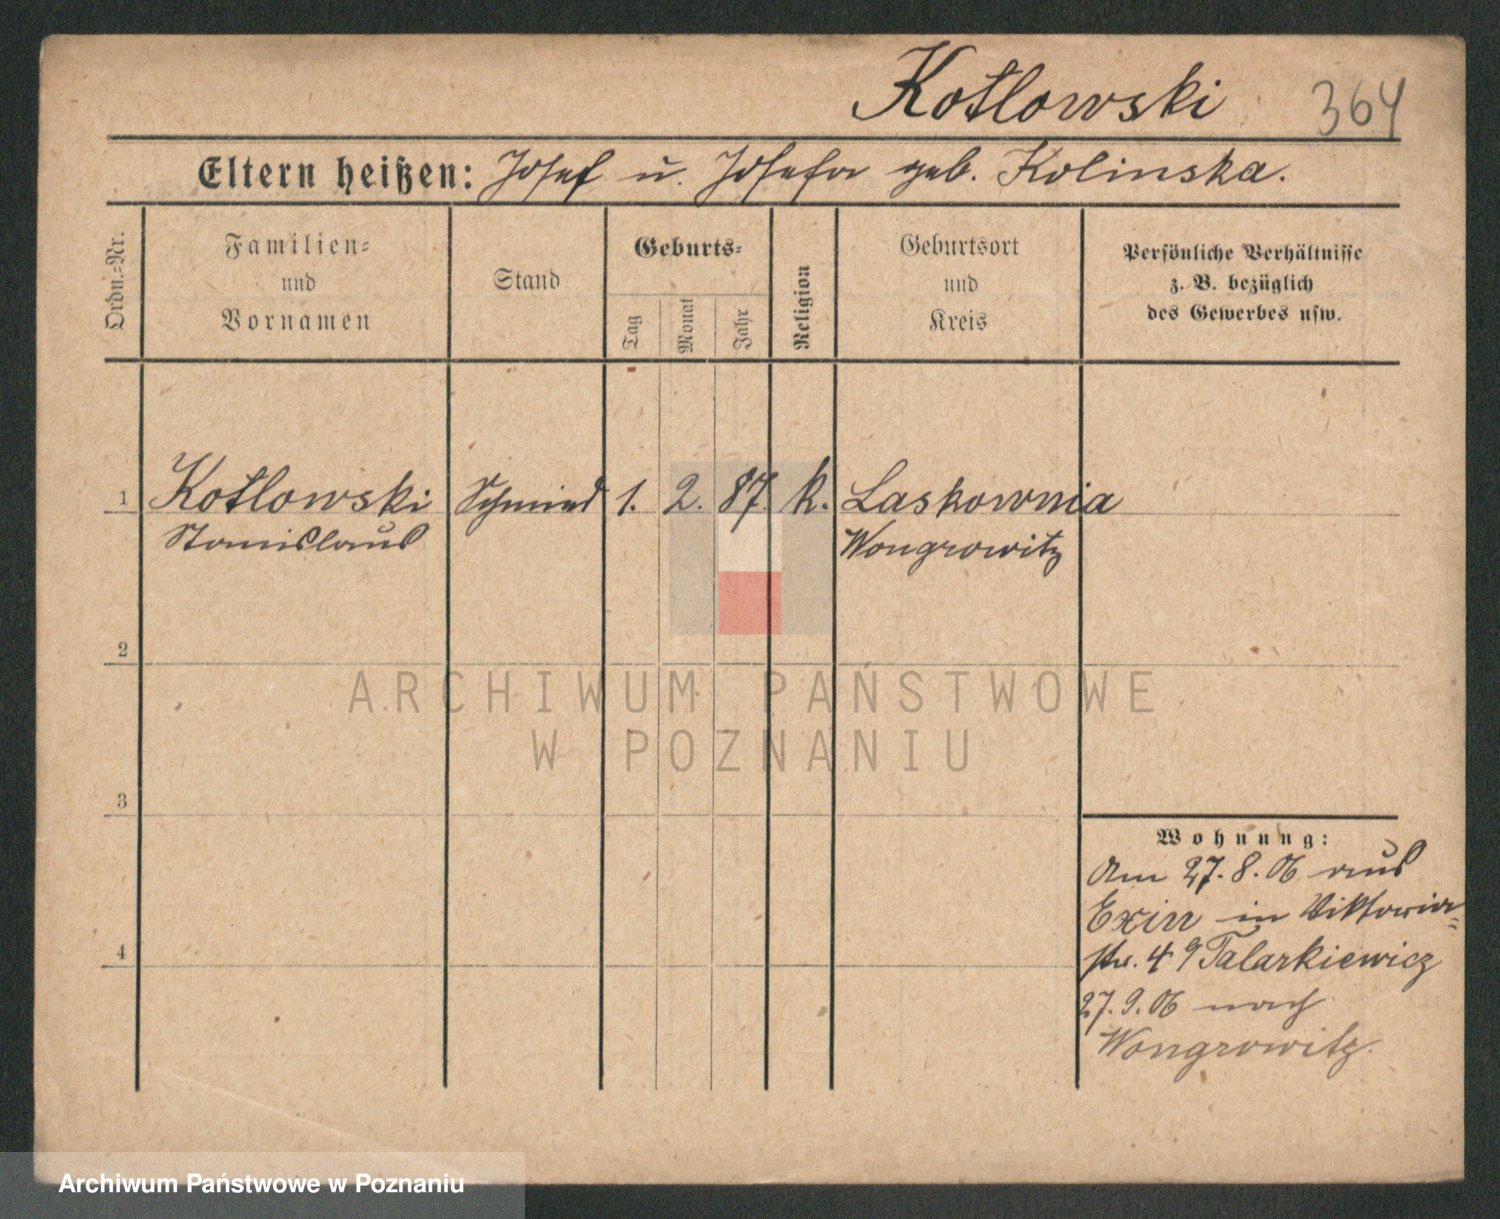 Kotlowski 364
Eltern heißen: Josef u. Josefa geb. Kolinska.
Ordn.-Nr.
Familien-
und
Vornamen
Stand
Geburts-
Tag
Monat
Jahr
Religion
Geburtsort
und
Kreis
Persönliche Verhältnisse
z. B. bezüglich
des Gewerbes usw.
1 Kotlowski Schmied 1. 2. 87. k. Laskownia
Stanislaus Wongrowitz
2
3
4
Wohnung:
Am 27. 8. 06 aus
Exin in Viktoria-
str. 4 Talarkiewicz
27. 9. 06 nach
Wongrowitz.
ARCHIWUM PAŃSTWOWE
W POZNANIU
Archiwum Państwowe w Poznaniu